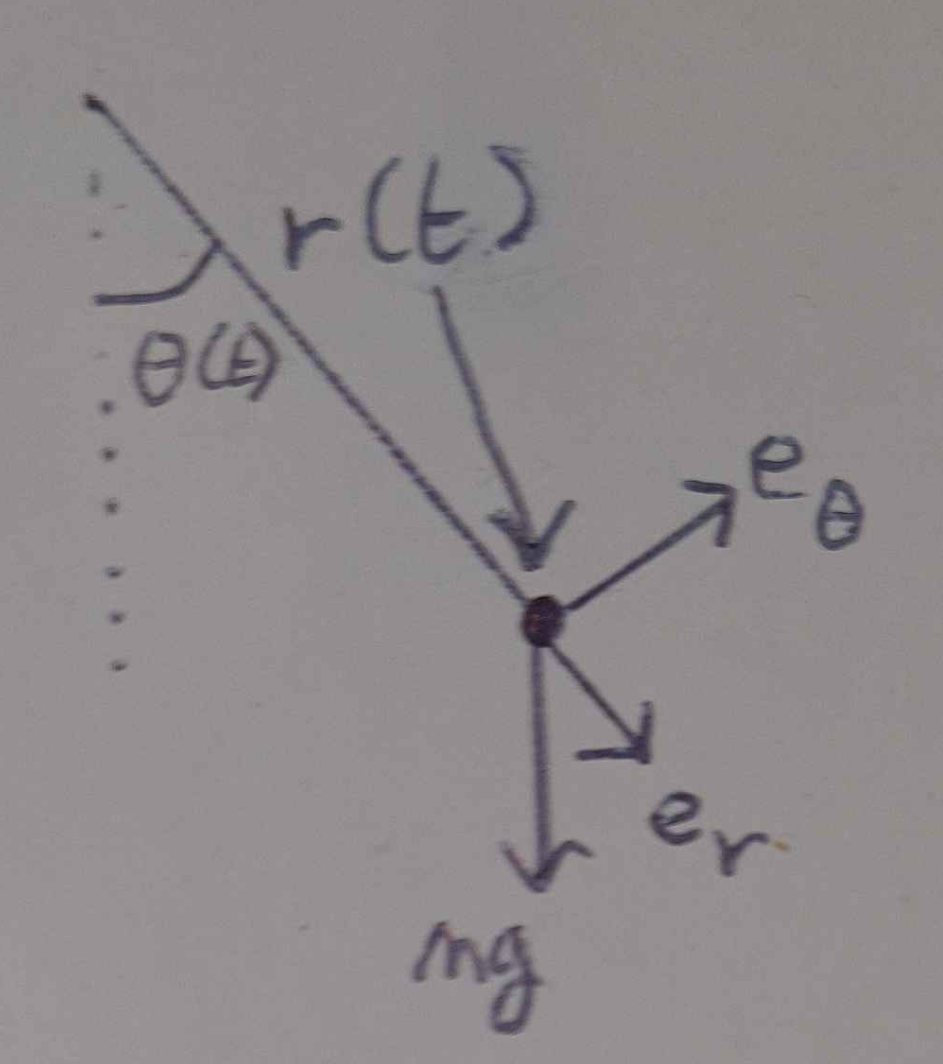 r(t)
θ(t)
e_θ
e_r
mg